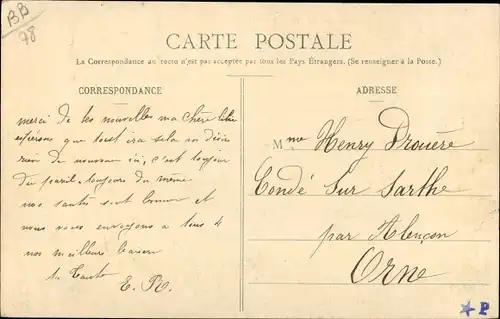 BB
78
CARTE POSTALE
La Correspondance au recto n'est pas acceptée par tous les Pays Étrangers. (Se renseigner à la Poste.)
CORRESPONDANCE
merci de tes nouvelles ma chère
espérons que tout ira selon ton désir
rien de nouveau ici, c'est toujours
du pareil, toujours du même
nos santés sont bonnes et
nous vous envoyons à tous 4
nos meilleurs baisers
ta tante
E. R.
ADRESSE
Mme Henry Drouère
Condé Sur Sarthe
par Alençon
Orne
P